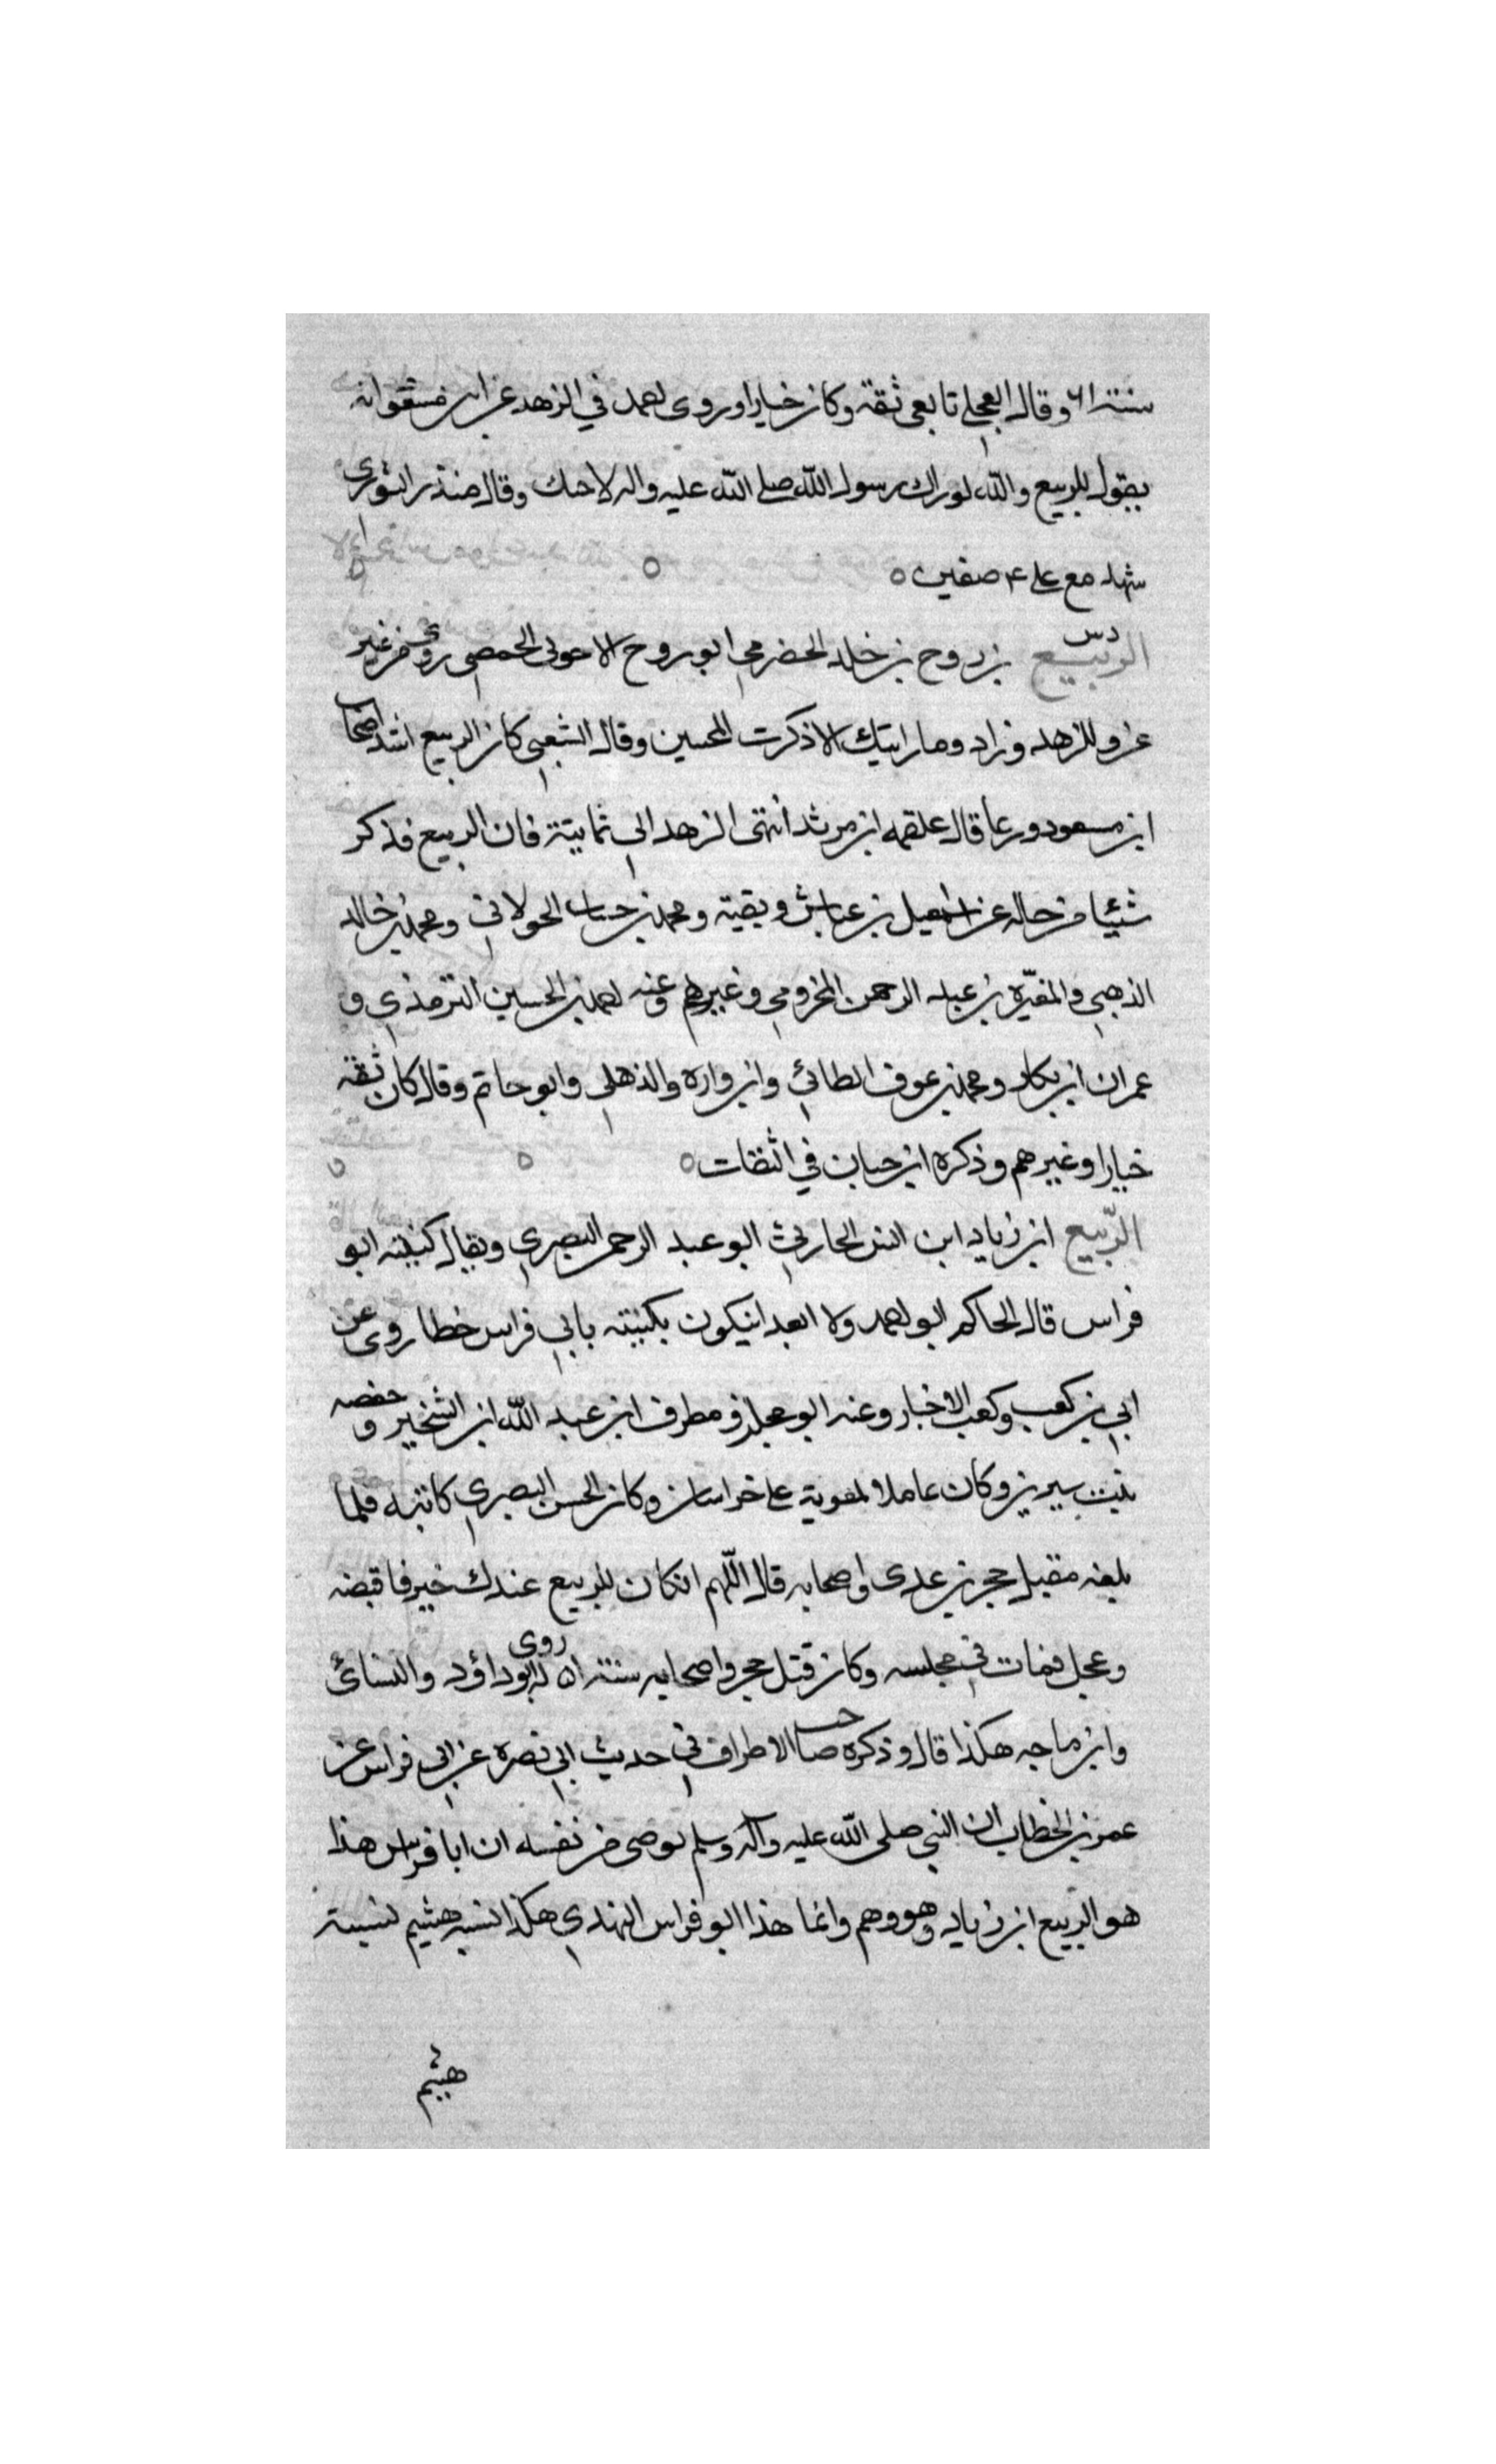 سنة ٦١ وقال العجلي تابعي ثقة وكان خيارا وروى احمد في الزهد عن ابن مسعود انه
يقول للربيع والله لو راك رسول الله صلى الله عليه واله لاحبك وقال منذر الثوري
شهد مع علي ع صفين ه
الربيع دس بن روح بن خلد الحضرمي ابو روح الاحوني الحمصي روى عن غير
عزو للزهد وزاد وما رايتك الا ذكرت المحسين وقال الشعبي كان الربيع اشد اصحاب
ابن مسعود ورعا قال علقمه ابن مرثد انتهى الزهد الى ثمانية فان الربيع فذكر
شيئا من حاله عن اسمعيل بن عياش وبقية ومحمد بن حساب الحولاني ومحمد بن خالد
الذهبي والمغيرة بن عبد الرحمن المخزومي وغيرهم وعنه احمد بن الحسين الترمذي و
عمران ابن بكار ومحمد بن عوف الطائي وابن وارة والذهلي وابو حاتم وقال كان ثقة
خيارا وغيرهم وذكره ابن حبان في الثقات ه
الربيع ابن زياد ابن انس الحارثي ابو عبد الرحمن البصري ويقال كنيته ابو
فراس قال الحاكم ابو احمد ولا ابعد انيكون بكنيته بابي فراس خطا روى عن
ابي بن كعب وكعب الاخبار وعنه ابو مجلز و مطرف ابن عبد الله ابن الشخير و حفصه
بنت سيرين وكان عاملا لمعوية على خراسان وكان الحسن البصري كاتبه فلما
بلغه مقتل حجر بن عدى واصحابه قال اللهم انكان للربيع عندك خير فاقبضه
وعجل فمات في مجلسه وكان قتل حجر واصحابه سنة ٥١ روى له ابو داؤد والنسائي
وابن ماجه هكذا قال وذكره صاحب الاطراف في حديث ابي نصرة عن ابي فراس عن
عمر بن الخطاب ان النبي صلى الله عليه واله وسلم يوصى من نفسه ان ابا فراس هذا
هو الربيع ابن زياد وهو وهم وانما هذا ابو فراس النهدي هكذا نسبه هشيم نسبة
هشيم